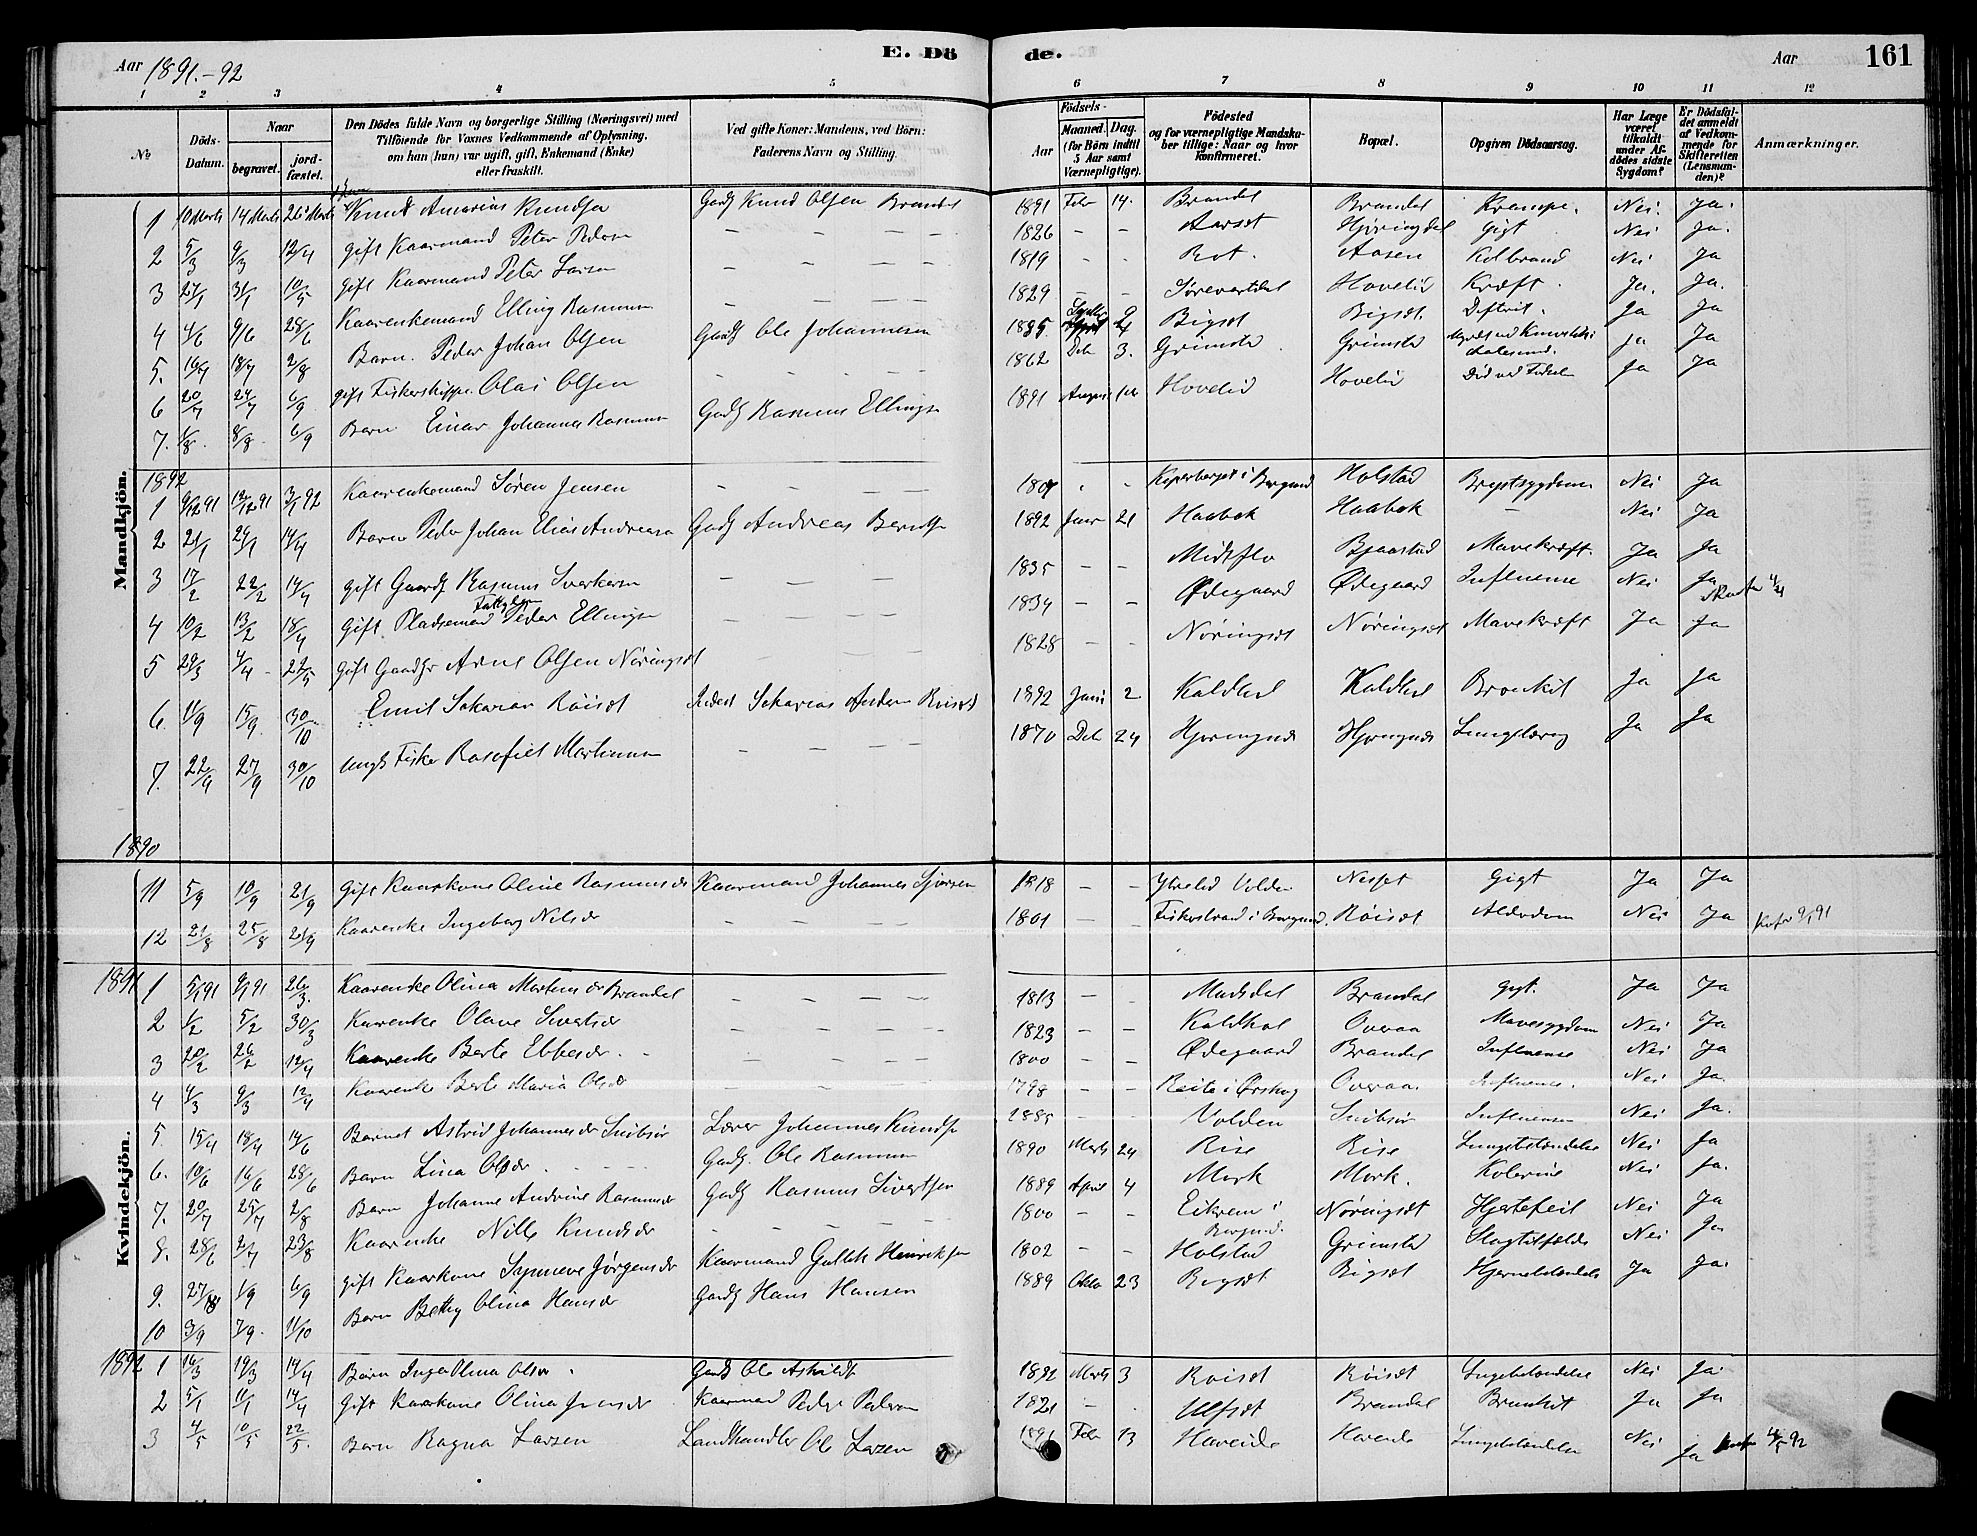 Aar 1891.-92
E. Dö de.
Aar 161
1 2 3 4 5 6 7 8 9 10 11 12
№
Döds-Datum.
Naar
begravet.
jord-fæstet.
Den Dödes fulde Navn og borgerlige Stilling (Næringsvei) med Tilföiende for Voxnes Vedkommende af Oplysning, om han (hun) var ugift, gift, Enkemand (Enke) eller fraskilt.
Ved gifte Koner: Mandens, ved Börn: Faderens Navn og Stilling.
Födsels-
Aar
Maaned. Dag. (for Börn indtil 5 Aar samt Værnepligtige).
Födested og for værnepligtige Mandskaber tillige: Naar og hvor konfirmeret.
Bopæl.
Opgiven Dödsaarsag.
Har Læge været tilkaldt under Afdödes sidste Sygdom?
Er Dödsfaldet anmeldt af Vedkommende for Skifteretten (Lensmanden)?
Anmærkninger.
Mandkjön.
1 10 Marts 14 Marts 26 Marts Barn Knud Amarius Knudsen Gaardb Knud Olsen Brandal 1891 Febr 14. Brandal Brandal Krampe. Nei. Ja.
2 5/3 9/3 12/4 gift Kaarmand Peter Pedersen — — — — 1826 — — Aarsæt Hjøringdal Gigt Nei Ja.
3 27/1 31/1 10/5 gift Kaarmand Peter Larsen — — — — 1819 - - Rot. Aasen Kolbrand Nei Ja
4 4/6 9/6 28/6 Kaarenkemand Elling Rasmussen — — — — 1829 - - Sørevartdal Hovelid Kræft. Ja. Ja.
5. 16/7 18/7 2/8 Barn. Peder Johan Olsen Gaardb Ole Johannesen 1885 Bigsæt Bigsæt. Difterit. Ja Ja
6 20/7 24/7 6/9 gift Fiskerskipper Olai Olsen - - - - 1862 Deb 3. Grimstad Grimstad Ja Ja
7. 1/8. 8/8. 6/9 Barn Einar Johannes Rasmussen Gaardb Rasmus Ellingsen 1891 August Hovelid Hovelid Død ved Fødsel Ja Ja
1892
1 9/12 91 13/12 91 3/1 92 Kaarenkemand Søren Jensen — — — — Koperberget i Borgund Holstad Brystsygdom Nei Ja
2 21/1 24/1 14/4 Barn Peder Johan Elias Andreasen Gaardb Andreas Berntsen 1892 Janr 21 Haabak Haabak — Nei Ja
3 17/2 22/2 14/4 gift Gaardb Rasmus Sverkersen — — — 1835 - - Midtflo Bjaastad Mavekræft. Ja Ja
4 10/2 13/2 18/4 gift Pladsemand Peder Ellingsen — — — 1834 — — Ødegaard Ødegaard Influense Nei Ja
5 29/3 4/4 - 22/5 gift Gaardbr Arne Olsen Nøringsæt — — — 1828 — - Nøringsæt Nøringsæt Mavekræft Ja Ja
6. 11/9 15/9. 30/10 Emil Sakarias Røisæt Sakarias Andersen Røisæt 1892 Juni 2 Kaldhol Kaldhol Bronkit Ja Ja
7. 22/9 27/9 30/10 ungk Fisker Rasofiel Martinusen — — — — 1870 Deb 24 Hjørungnæs Hjørungnæs Lungetæring Ja Ja
1890
Kvindekjön.
11 5/9 10/9 21/9 Gift Kaarkone Oline Rasmusdr Kaarmand Johannes Sjursen 1818 — — Ytrelid Volden Nesset Gigt Ja Ja
12 21/8 25/8 21/9 Kaarenke Ingeborg Nilsdr — — — — 1801 — Fiskerstrand i Borgund. Røisæt Alderdom Nei Ja 9/1 91
1891
1 5/1 91 9/1 91 26/3. Kaarenke Olina Martinusdr Brandal — — — — 1813 — - Madsdal Brandal Gigt. Ja Ja
2 1/2 5/2 30/3 Kaarenke Olave Sivertsdr — — — — 1823 — — Kaldhol Overaa Mavesygdom Nei Ja
3 20/2 26/2 12/4 Kaarenke Berte Ebbesdr. — — — — 1800 — — Ødegaard Brandal Influense Nei Ja
4 4/3 9/3 12/4 Kaarenke Berte Maria Olsdr — — — — 1798 — — Reite i Ørskog Overaa Influense. Nei Ja.
5. 15/4 18/4 14/6 Barnet Astrid Johannesdr Snibsør Lærer Johannes Knudsen 1885 - - Volden Snibsør Influensen Nei Ja.
6. 10/6 16/6 28/6 Barn Lina Olsdr. Gaardb. Ole Rasmussen 1890 Marts 24 Rise Rise Lungebetændelse Nei Ja
7. 20/7 25/7 2/8 Barn Johanne Andrine Rasmusdr Gaardb Rasmus Sivertsen 1889 April 4 Mork Mork. Kolerine Nei Ja.
8. 28/6 2/7 23/8 Kaarenke Nille Knudsdr - — — — — 1800 — - Eikrem i Borgund. Nøringsæt Hjertefeil Nei Ja
9. 1/9 6/9 gift Kaarkone Synneve Jørgensdr Kaarmand Gullik Henriksen 1802 — — Holstad Grimstad Slagtilfælde Nei Ja
10 3/9 7/9. 11/10 Barn Betty Olina Hansdr Gaardb Hans Hansen 1889 Oktbr 23 Bigsæt Bigsæt Hjernebetændelse Ja Ja.
1892
1 16/3 19/3 14/4 Barn Inga Olina Olsdr. Gaardb Ole Asknildt 1892 Marts 3 Røisæt Røisæt Lungebetændelse Nei Ja.
2 5/1 11/1 14/4 Gift Kaarkone Olina Jensdr Kaarmand Peder Pedersen 1821 — . Ulfsæt Brandal Bronkit Ja Ja
3 4/5 10/5 22/5. Barn Ragna Larsen Landhandler Ole Larsen 1891 Febr 13 Hareide Hareide Lungebetændelse Nei Ja